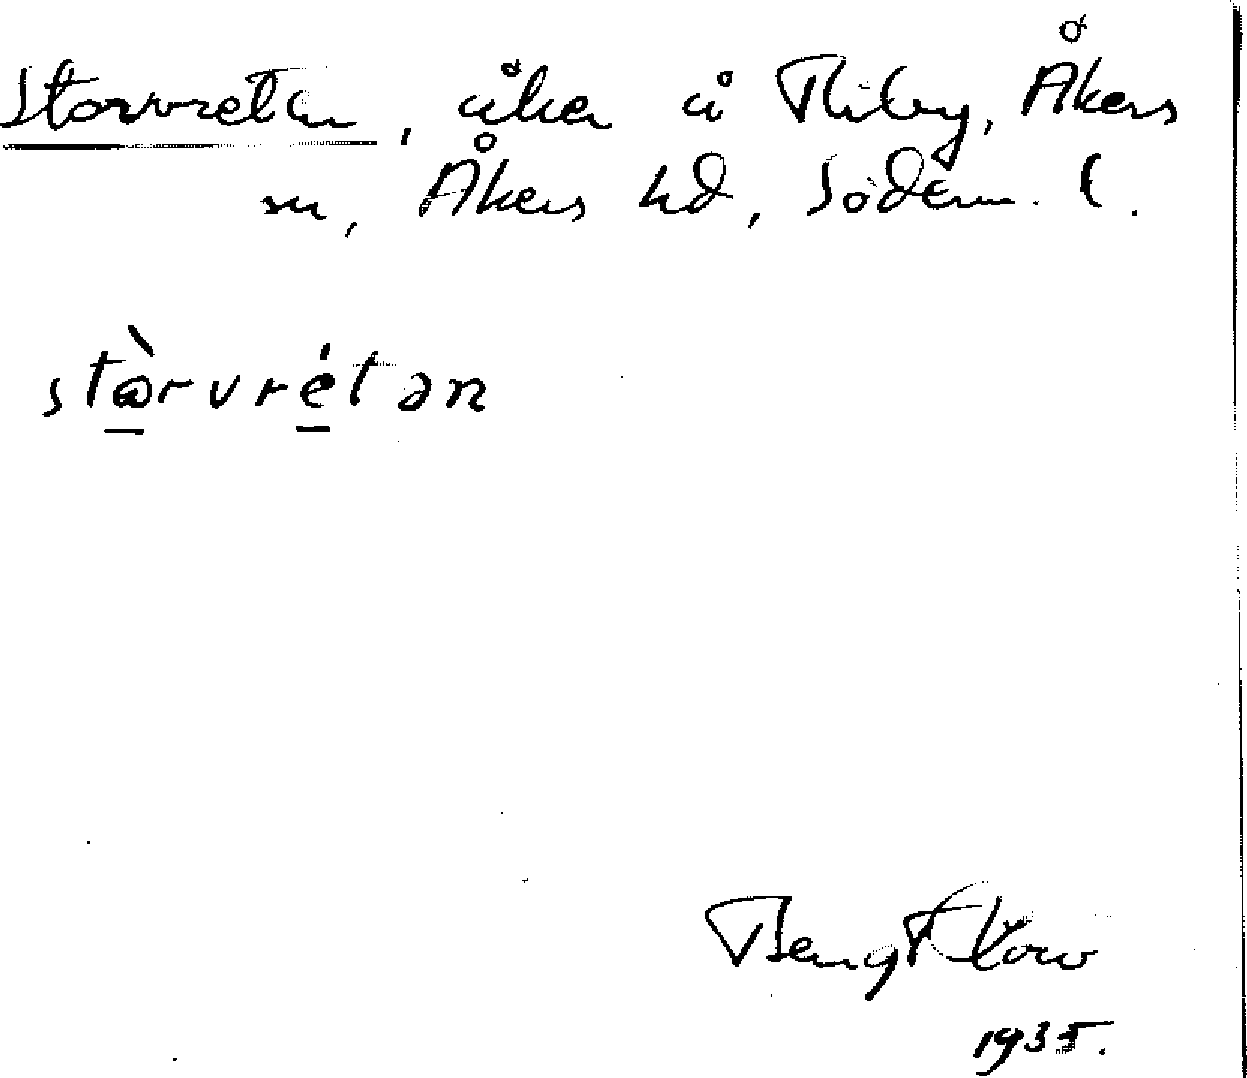 Storvretan, åker å Riby, Åkers
sn, Åkers hd, Söderm. l.
stɷ̀rvrétən
Bengt
1935.